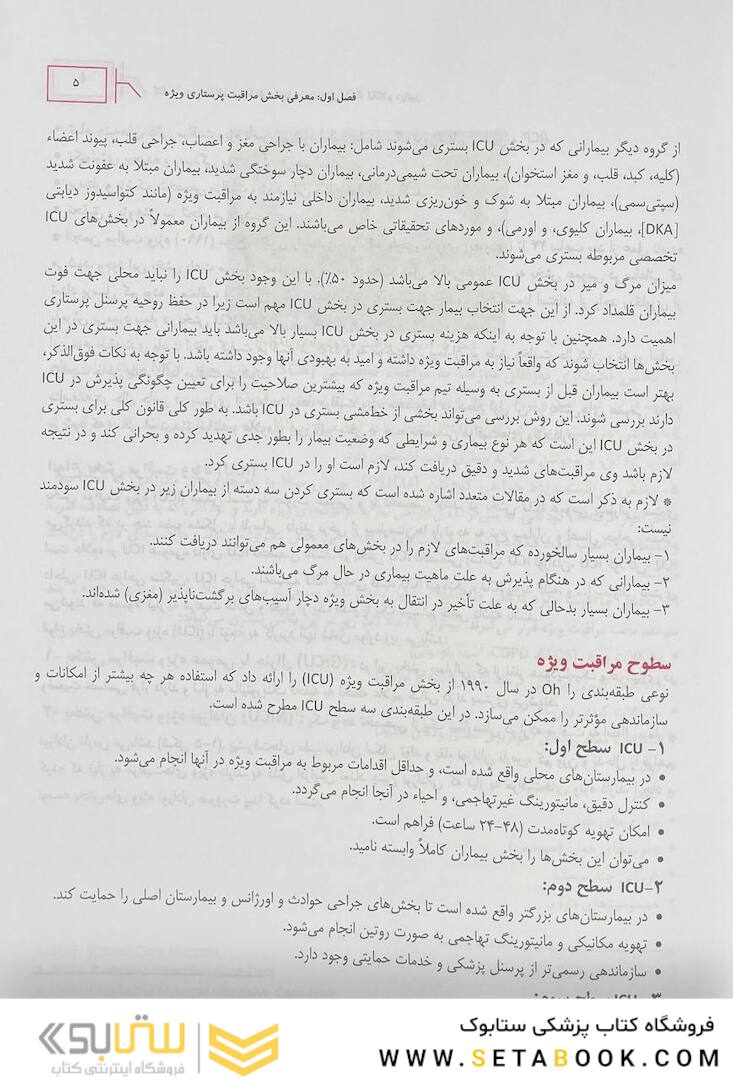 ۵
فصل اول: معرفی بخش مراقبت پرستاری ویژه
از گروه دیگر بیمارانی که در بخش ICU بستری می‌شوند شامل: بیماران با جراحی مغز و اعصاب، جراحی قلب، پیوند اعضاء
(کلیه، کبد، قلب، و مغز استخوان)، بیماران تحت شیمی‌درمانی، بیماران دچار سوختگی شدید، بیماران مبتلا به عفونت شدید
(سپتی‌سمی)، بیماران مبتلا به شوک و خون‌ریزی شدید، بیماران داخلی نیازمند به مراقبت ویژه (مانند کتواسیدوز دیابتی
[DKA]، بیماران کلیوی، و اورمی)، و موردهای تحقیقاتی خاص می‌باشند. این گروه از بیماران معمولاً در بخش‌های ICU
تخصصی مربوطه بستری می‌شوند.
میزان مرگ و میر در بخش ICU عمومی بالا می‌باشد (حدود ۵۰٪). با این وجود بخش ICU را نباید محلی جهت فوت
بیماران قلمداد کرد. از این جهت انتخاب بیمار جهت بستری در بخش ICU مهم است زیرا در حفظ روحیه پرسنل پرستاری
اهمیت دارد. همچنین با توجه به اینکه هزینه بستری در بخش ICU بسیار بالا می‌باشد باید بیمارانی جهت بستری در این
بخش‌ها انتخاب شوند که واقعاً نیاز به مراقبت ویژه داشته و امید به بهبودی آنها وجود داشته باشد. با توجه به نکات فوق‌الذکر،
بهتر است بیماران قبل از بستری به وسیله تیم مراقبت ویژه که بیشترین صلاحیت را برای تعیین چگونگی پذیرش در ICU
دارند بررسی شوند. این روش بررسی می‌تواند بخشی از خط‌مشی بستری در ICU باشد. به طور کلی قانون کلی برای بستری
در بخش ICU این است که هر نوع بیماری و شرایطی که وضعیت بیمار را بطور جدی تهدید کرده و بحرانی کند و در نتیجه
لازم باشد وی مراقبت‌های شدید و دقیق دریافت کند، لازم است او را در ICU بستری کرد.
* لازم به ذکر است که در مقالات متعدد اشاره شده است که بستری کردن سه دسته از بیماران زیر در بخش ICU سودمند
نیست:
۱- بیماران بسیار سالخورده که مراقبت‌های لازم را در بخش‌های معمولی هم می‌توانند دریافت کنند.
۲- بیمارانی که در هنگام پذیرش به علت ماهیت بیماری در حال مرگ می‌باشند.
۳- بیماران بسیار بدحالی که به علت تأخیر در انتقال به بخش ویژه دچار آسیب‌های برگشت‌ناپذیر (مغزی) شده‌اند.
سطوح مراقبت ویژه
نوعی طبقه‌بندی را Oh در سال ۱۹۹۰ از بخش مراقبت ویژه (ICU) را ارائه داد که استفاده هر چه بیشتر از امکانات و
سازماندهی مؤثرتر را ممکن می‌سازد. در این طبقه‌بندی سه سطح ICU مطرح شده است.
۱- ICU سطح اول:
• در بیمارستان‌های محلی واقع شده است، و حداقل اقدامات مربوط به مراقبت ویژه در آنها انجام می‌شود.
• کنترل دقیق، مانیتورینگ غیرتهاجمی، و احیاء در آنجا انجام می‌گردد.
• امکان تهویه کوتاه‌مدت (۴۸-۲۴ ساعت) فراهم است.
• می‌توان این بخش‌ها را بخش بیماران کاملاً وابسته نامید.
۲- ICU سطح دوم:
• در بیمارستان‌های بزرگتر واقع شده است تا بخش‌های جراحی حوادث و اورژانس و بیمارستان اصلی را حمایت کند.
• تهویه مکانیکی و مانیتورینگ تهاجمی به صورت روتین انجام می‌شود.
• سازماندهی رسمی‌تر از پرسنل پزشکی و خدمات حمایتی وجود دارد.
فروشگاه کتاب پزشکی ستابوک
WWW.SETABOOK.COM
ستابوک
فروشگاه اینترنتی کتاب